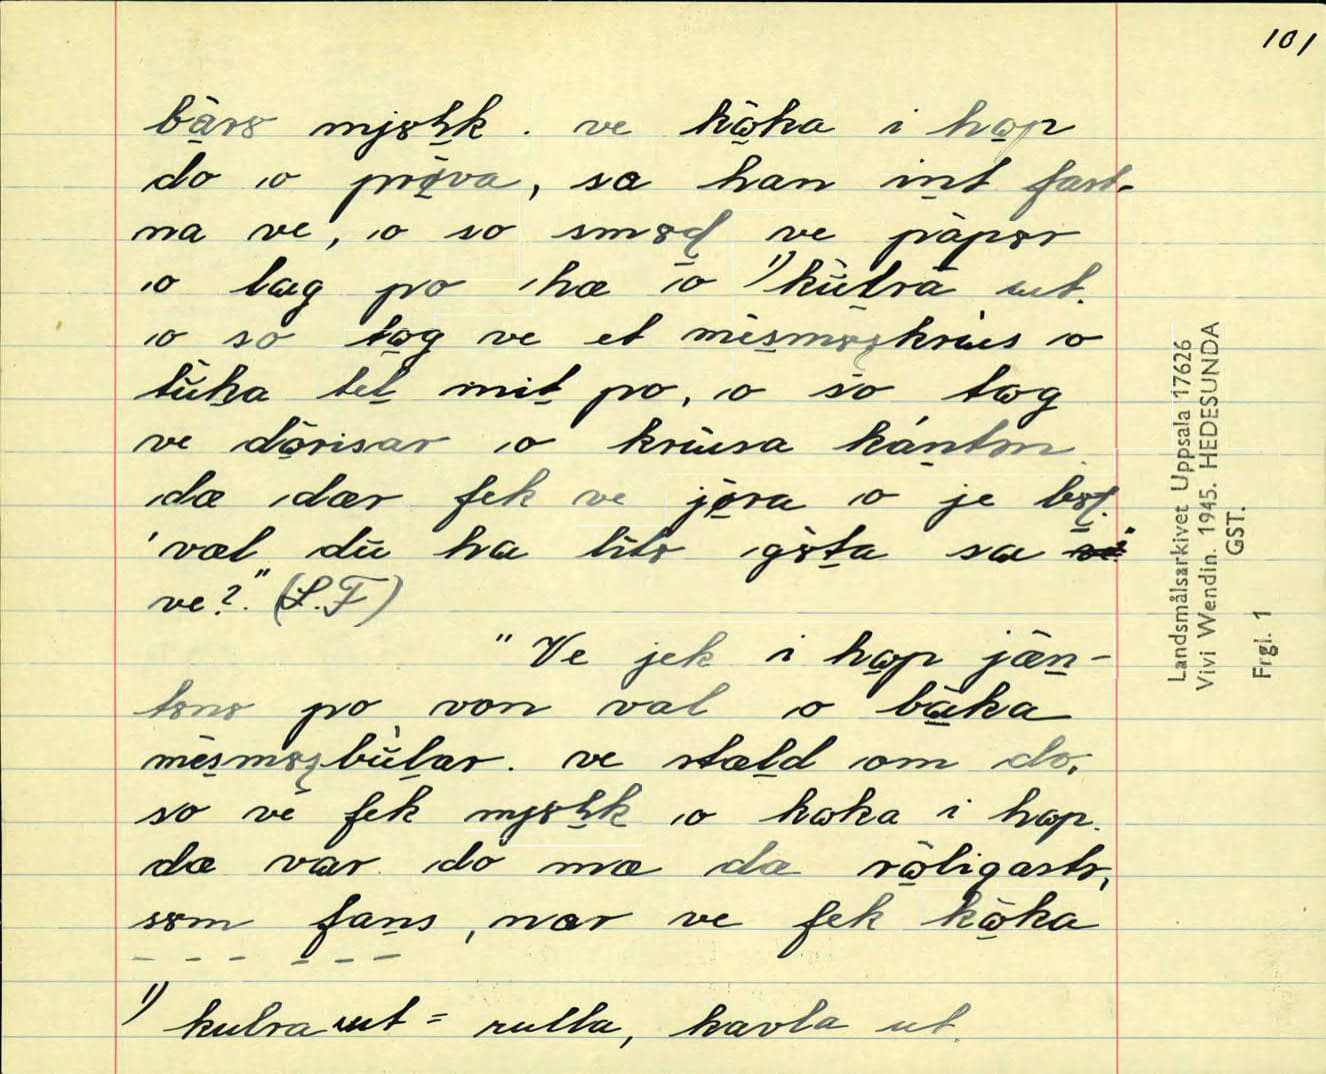 101
bàrə mjəḥk. ve kö̀ka i hop
do o prǿva, sa han int fast-
na ve, o so sməḍ ve pàpər
o tæg po hæ o ¹⁾kùtra ut.
o so tog ve et mèsməṣkrus o
tùka tel mit po, o so tog
ve dörisar o krùsa kántən.
dæ dær fek ve jöra o je bəṭ.
"væl du ha lìtə gə̀ta sa
ve?" (L.F)
"Ve jek i hop jæ̀n-
tənə po von val o bàka
mèsməṣbùlar. ve stæld om do,
so ve fek mjəḥk o koka i hop.
dæ var do mæ dæ ròligastə,
səm fans, nær ve fek kòka
¹⁾ kulra ut = rulla, kavla ut.
Landsmålsarkivet Uppsala 17626
Vivi Wendin. 1945. HEDESUNDA
GST.
Frgl. 1